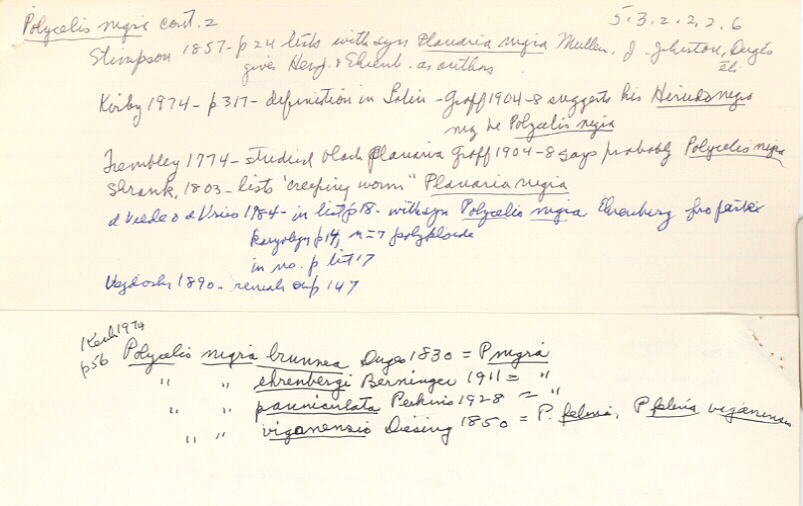 Polycelis nigra cont. 2
5.3.2.2.2.6
Stimpson 1857 - p 24 lists with syn Planaria nigra Muller, J. Johnston, Dugés
gives Hemp. & Ehrenb. as authors
Kirby 1974 - p 317 - definition in Latin - Graff 1904-8 suggests his Hirudo nigra
may be Polycelis nigra
Trembley 1774 - studied black Planaria Graff 1904-8 says probably Polycelis nigra
Shrank, 1803 - lists "creeping worm" Planaria nigra
de Vries 1984 - in list p 18 - with syn Polycelis nigra Ehrenberg
karyology p 14, n=7 polyploide
in no. p list 17
1890 - reveals on p 147
1974
p56 Polycelis nigra brunnea Duges 1830 = P nigra
" " ehrenbergi Berninger 1911 = "
" " pauniculata Perkins 1928 = "
" " viganensis Diesing 1850 = P. felina, P felina viganensis